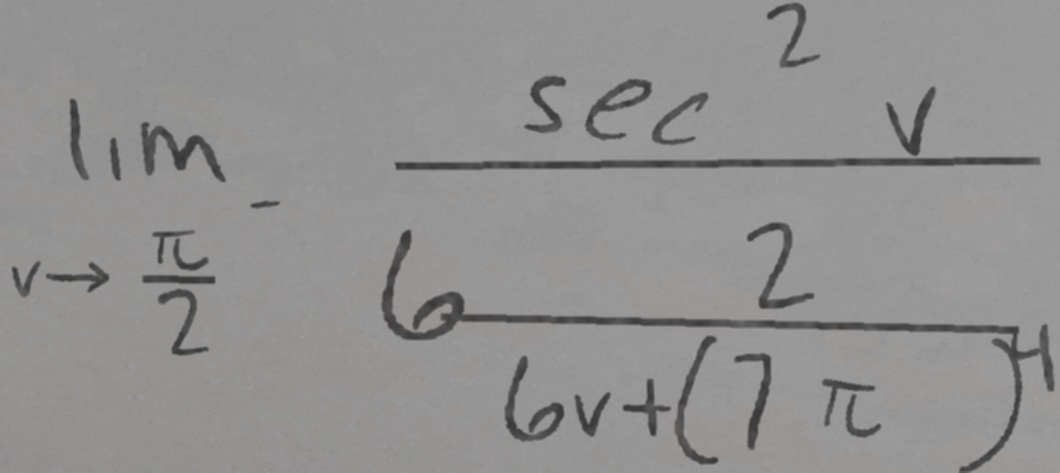 \lim_{v \to \frac{\pi}{2}^{-}} \frac{\sec^{2} v}{6 \frac{2}{6v + (7\pi)^{4}}}